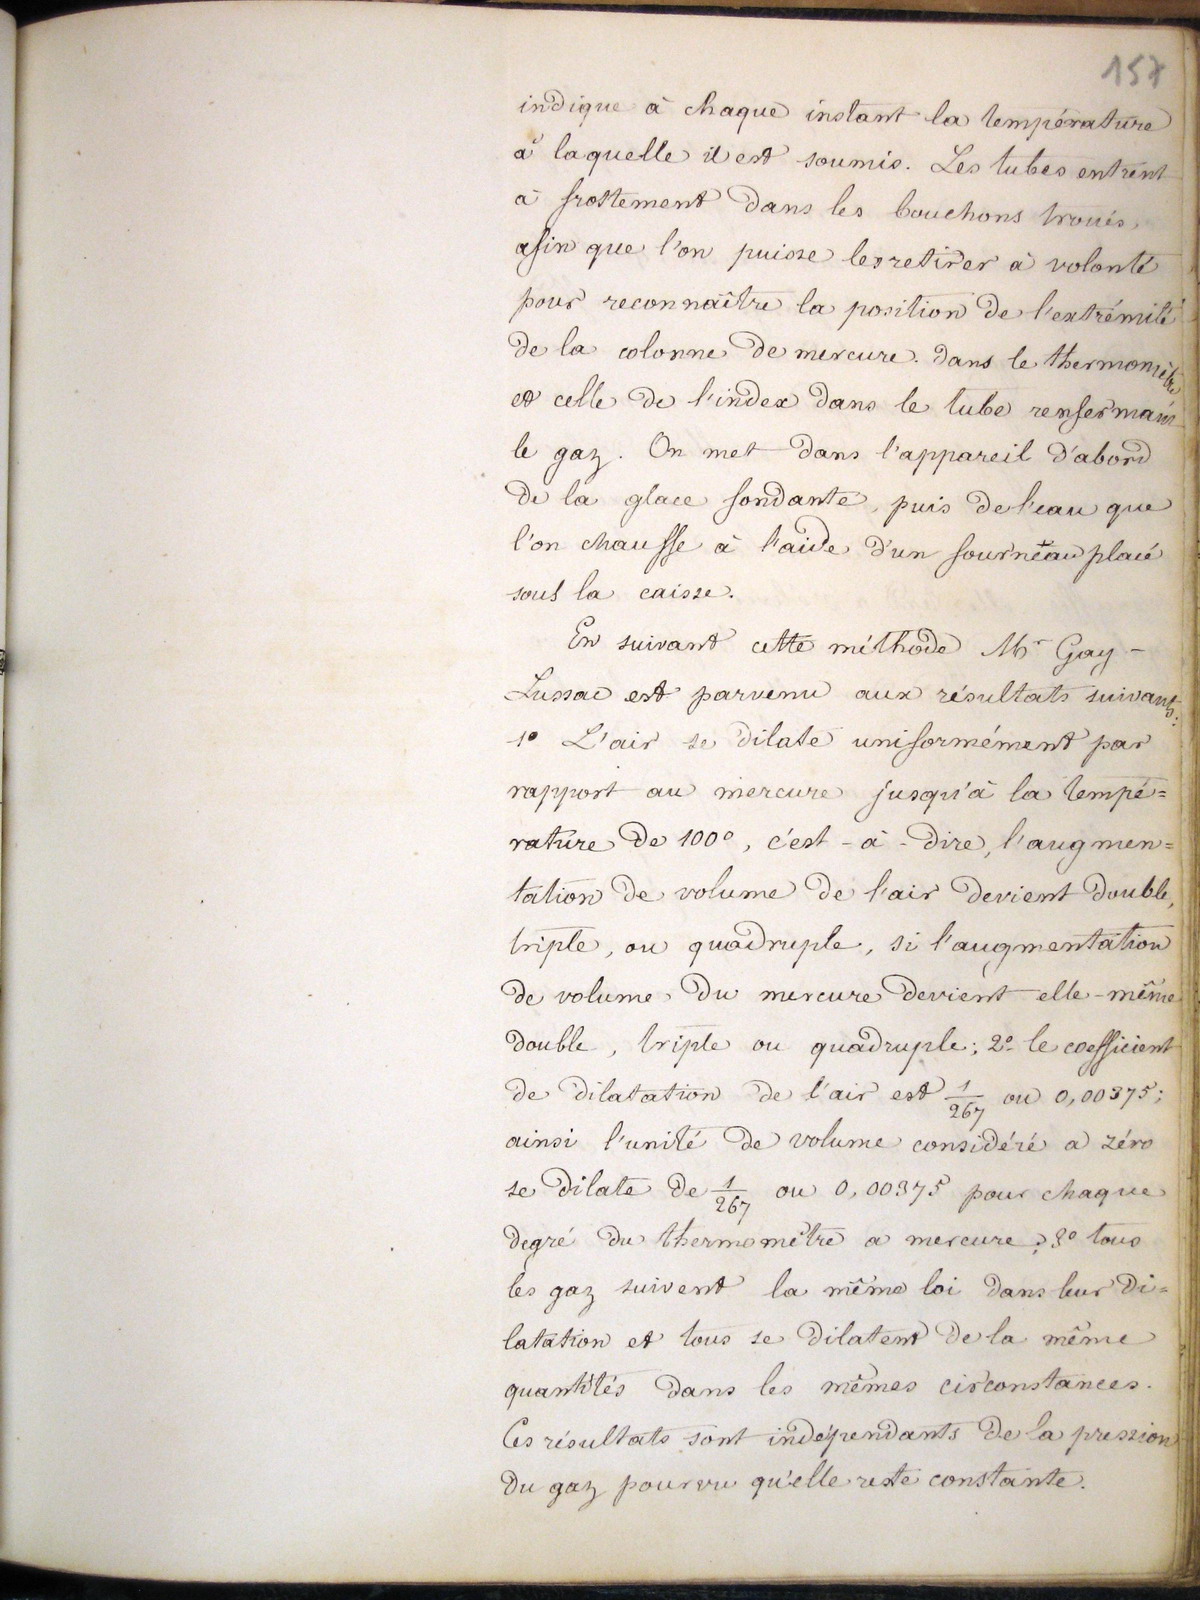 157
indique à chaque instant la température
à laquelle il est soumis. Les tubes entrent
à frottement dans les bouchons troués,
afin que l'on puisse les retirer à volonté
pour reconnaître la position de l'extrémité
de la colonne de mercure dans le thermomètre
et celle de l'index dans le tube renfermant
le gaz. On met dans l'appareil d'abord
de la glace fondante, puis de l'eau que
l'on chauffe à l'aide d'un fourneau placé
sous la caisse.
En suivant cette méthode Mr Gay-
Lussac est parvenu aux résultats suivants:
1º L'air se dilate uniformément par
rapport au mercure jusqu'à la tempé=
rature de 100º, c'est-à-dire, l'augmen=
tation de volume de l'air devient double,
triple, ou quadruple, si l'augmentation
de volume du mercure devient elle-même
double, triple ou quadruple; 2º le coefficient
de dilatation de l'air est 1/267 ou 0,00375;
ainsi l'unité de volume considéré a zéro
se dilate de 1/267 ou 0,00375 pour chaque
degré du thermomètre a mercure; 3º tous
les gaz suivent la même loi dans leur di=
latation et tous se dilatent de la même
quantités dans les mêmes circonstances.
Ces résultats sont indépendants de la pression
du gaz pourvu qu'elle reste constante.